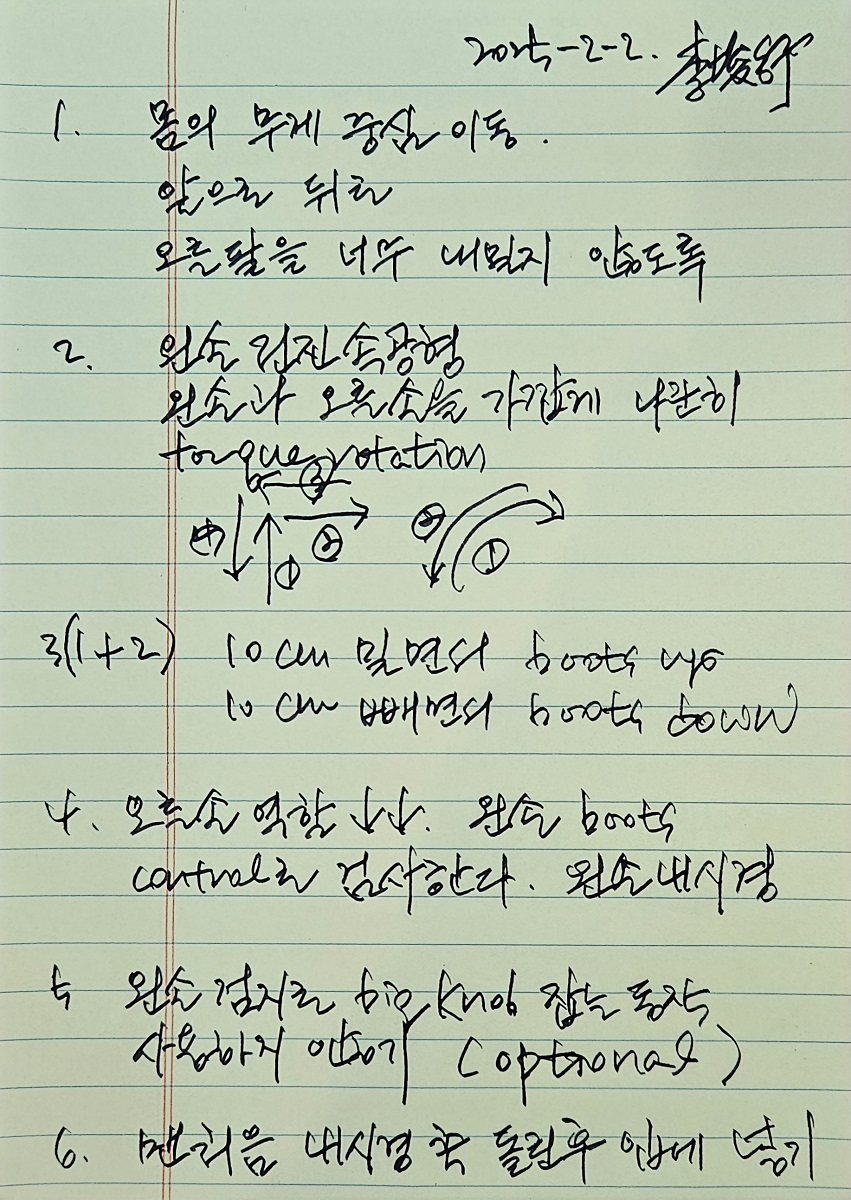 2025-2-2. 李埈行
1. 몸의 무게 중심 이동.
앞으로 뒤로
오른팔을 너무 내밀지 않도록
2. 왼손
왼손과 오른손을 가깝게 나란히
torque rotation
③
④ ② ② ①
①
3(1+2) 10 cm 밀면서 boots up
10 cm 빼면서 boots down
4. 오른손 역할 ↓↓. 왼손 boots
control로 검사한다. 왼손내시경
5 왼손 검지로 big knob 잡는 동작
사용하지 않기 (optional)
6. 맨처음 내시경 축 돌린후 입에 넣기